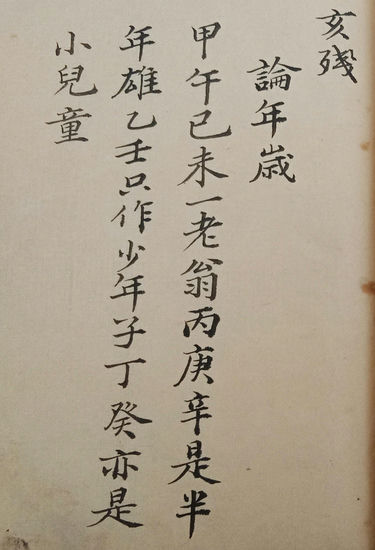 亥殘
論年歲
甲午己未一老翁丙庚辛是半
年雄乙壬只作少年子丁癸亦是
小兒童